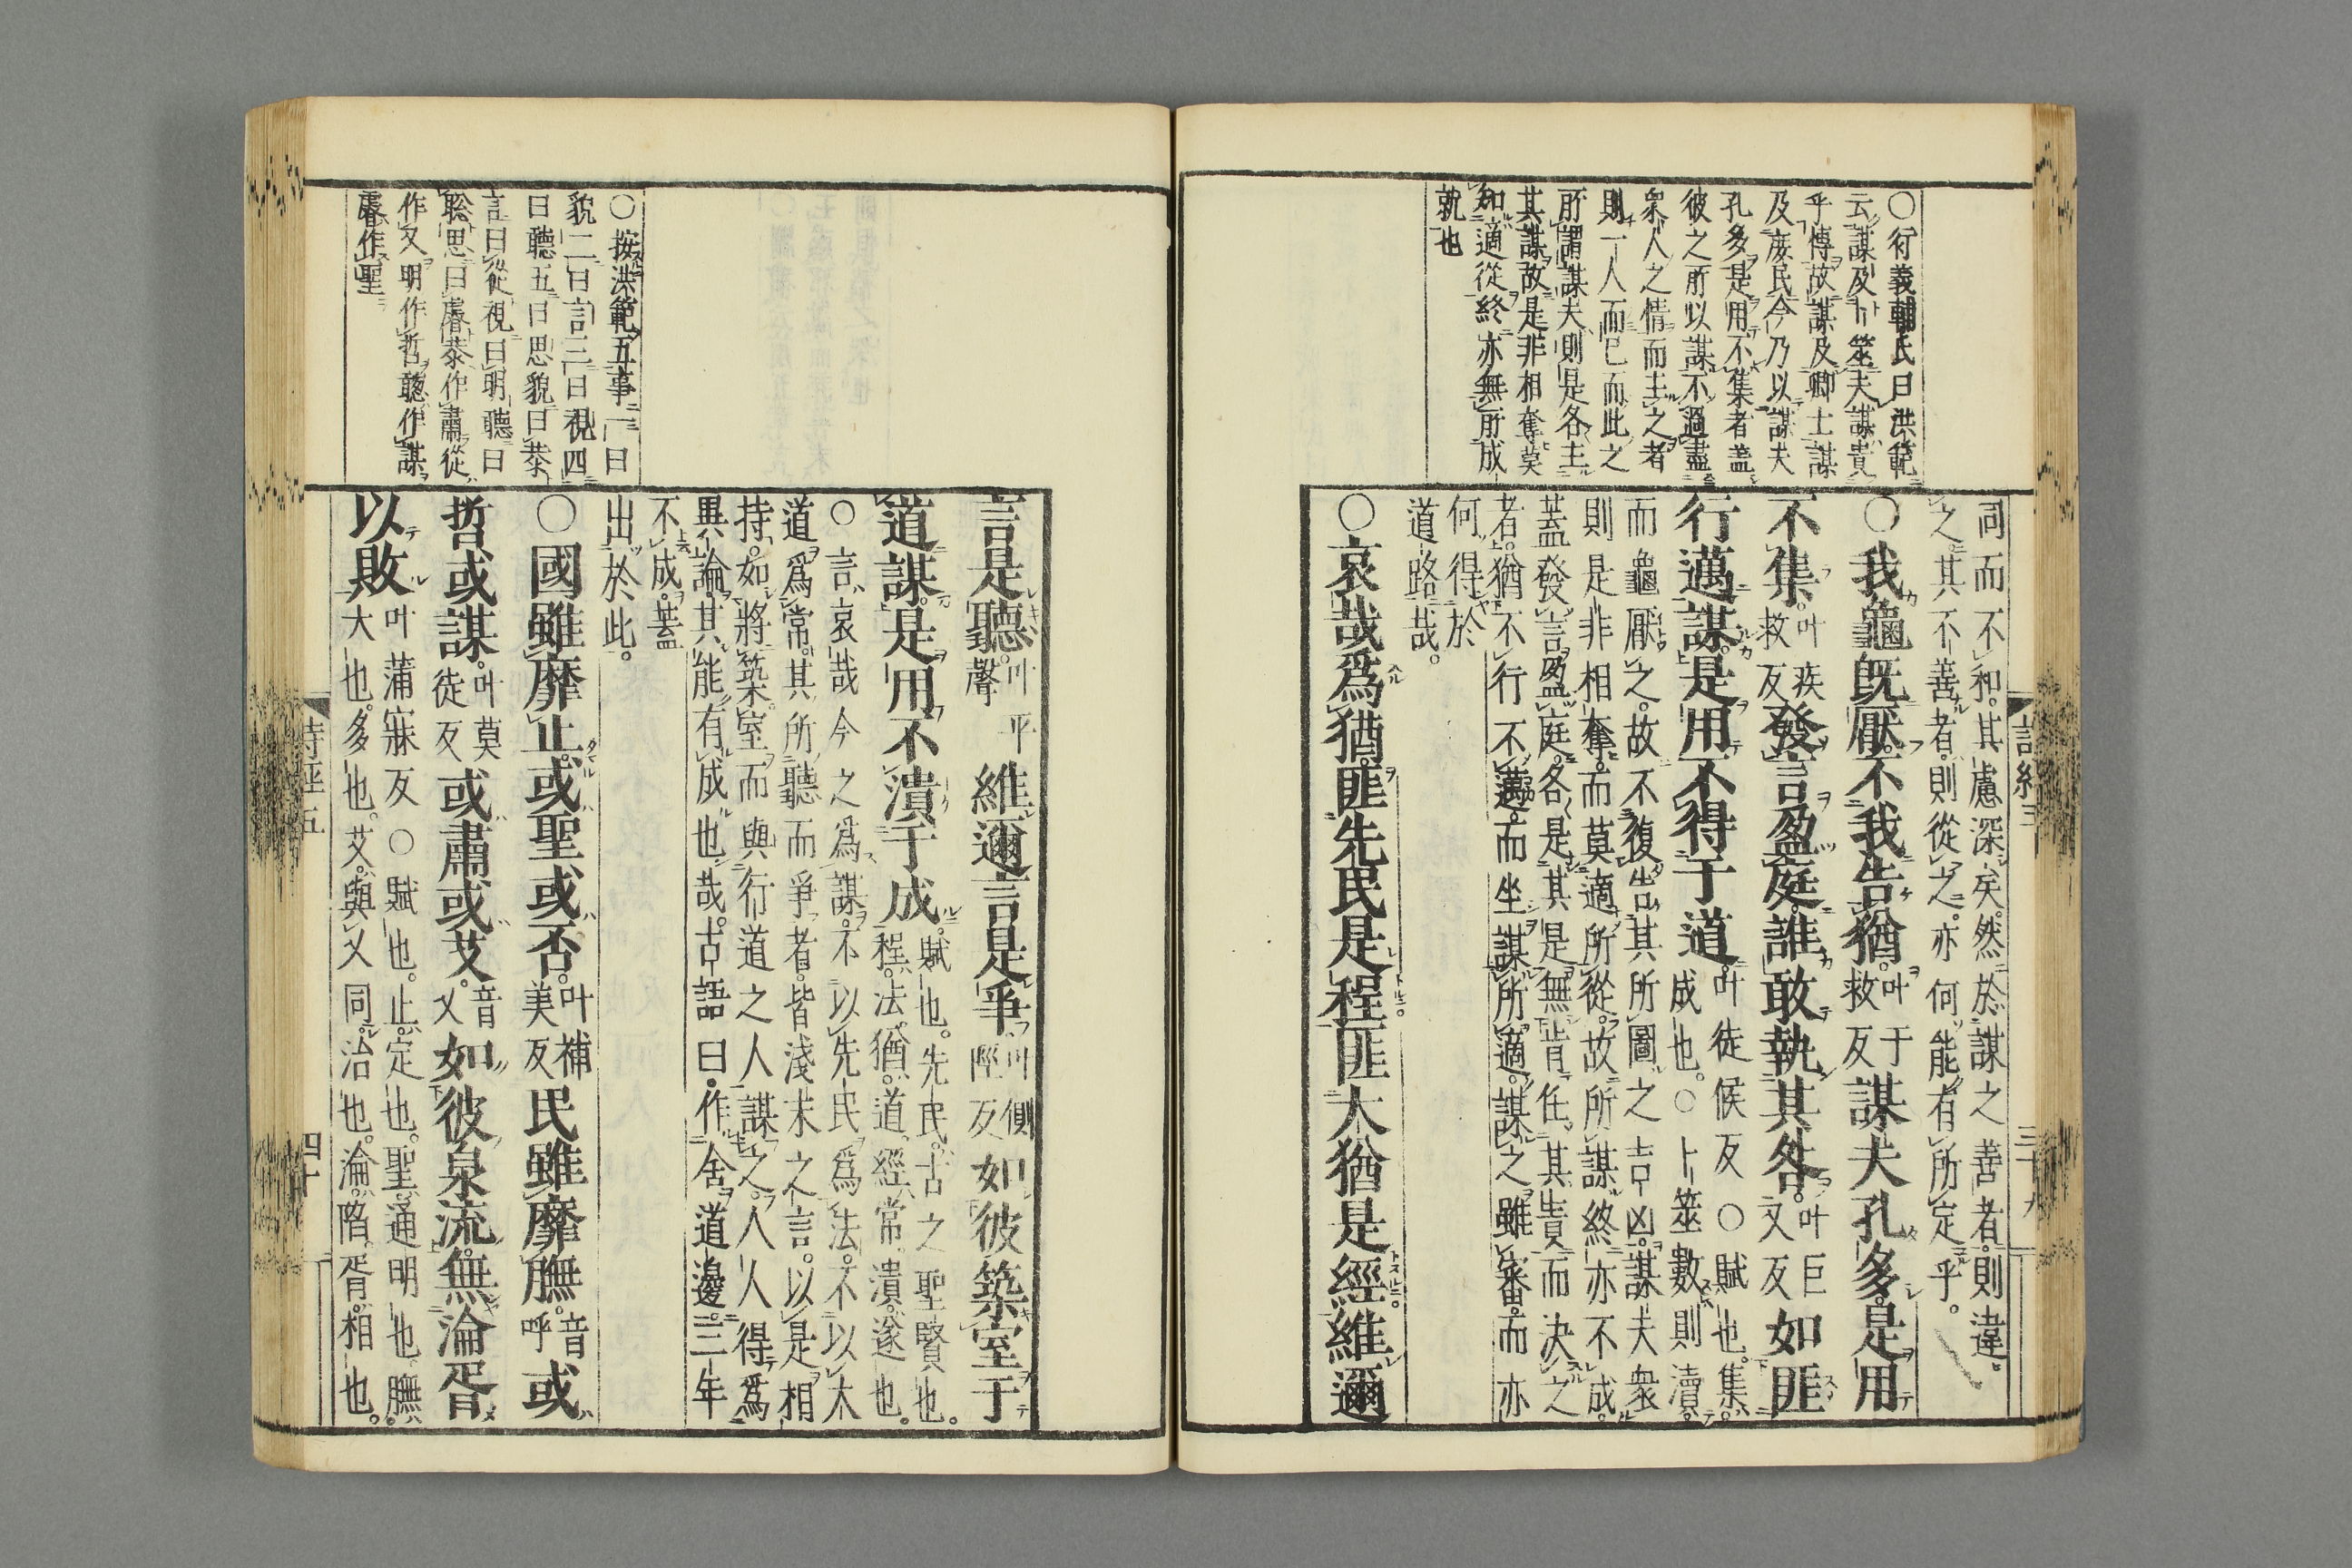 ○衍義輔氏曰洪範
云謀及卜筮夫謀貴
乎博故謀及卿士謀
及庶民今乃以謀夫
孔多是用不集者蓋
彼之所以謀不過盡
衆人之情而主之者
則一人而已而此之
所謂謀夫則是各主
其謀故是非相奪莫
知適從終亦無所成
就也
同而不和其慮深矣然於謀之善者則違
之其不善者則從之亦何能有所定乎
○我龜既厭不我告猶叶于救反謀夫孔多是用
不集叶疾救反發言盈庭誰敢執其咎叶巨又反如匪
行邁謀是用不得于道叶徒候反○賦也集
成也○卜筮數則瀆
而龜厭之故不復告其所圖之吉凶謀夫衆
則是非相奪而莫適所從故所謀終亦不成
蓋發言盈庭各是其是無肯任其責而決之
者猶不行不邁而坐謀所適謀之雖審而亦
何得於
道路哉
○哀哉爲猶匪先民是程匪大猶是經維邇
詩經三
三十九
言是聽叶平聲維邇言是爭叶側陘反如彼築室于
道謀是用不潰于成賦也先民古之聖賢也
程法猶道經常潰遂也
○言哀哉今之爲謀不以先民爲法不以大
道爲常其所聽而爭者皆淺末之言以是相
持如將築室而與行道之人謀之人人得爲
異論其能有成也哉古語曰作舍道邊三年
不成蓋
出於此
○按洪範五事一曰
貌二曰言三曰視四
曰聽五曰思貌曰恭
言曰從視曰明聽曰
聰思曰睿恭作肅從
作乂明作哲聰作謀
睿作聖
○國雖靡止或聖或否叶補美反民雖靡膴音呼或
哲或謀叶莫徒反或肅或艾音乂如彼泉流無淪胥
以敗叶蒲寐反○賦也止定也聖通明也膴
大也多也艾與乂同治也淪陷胥相也
詩經五
四十